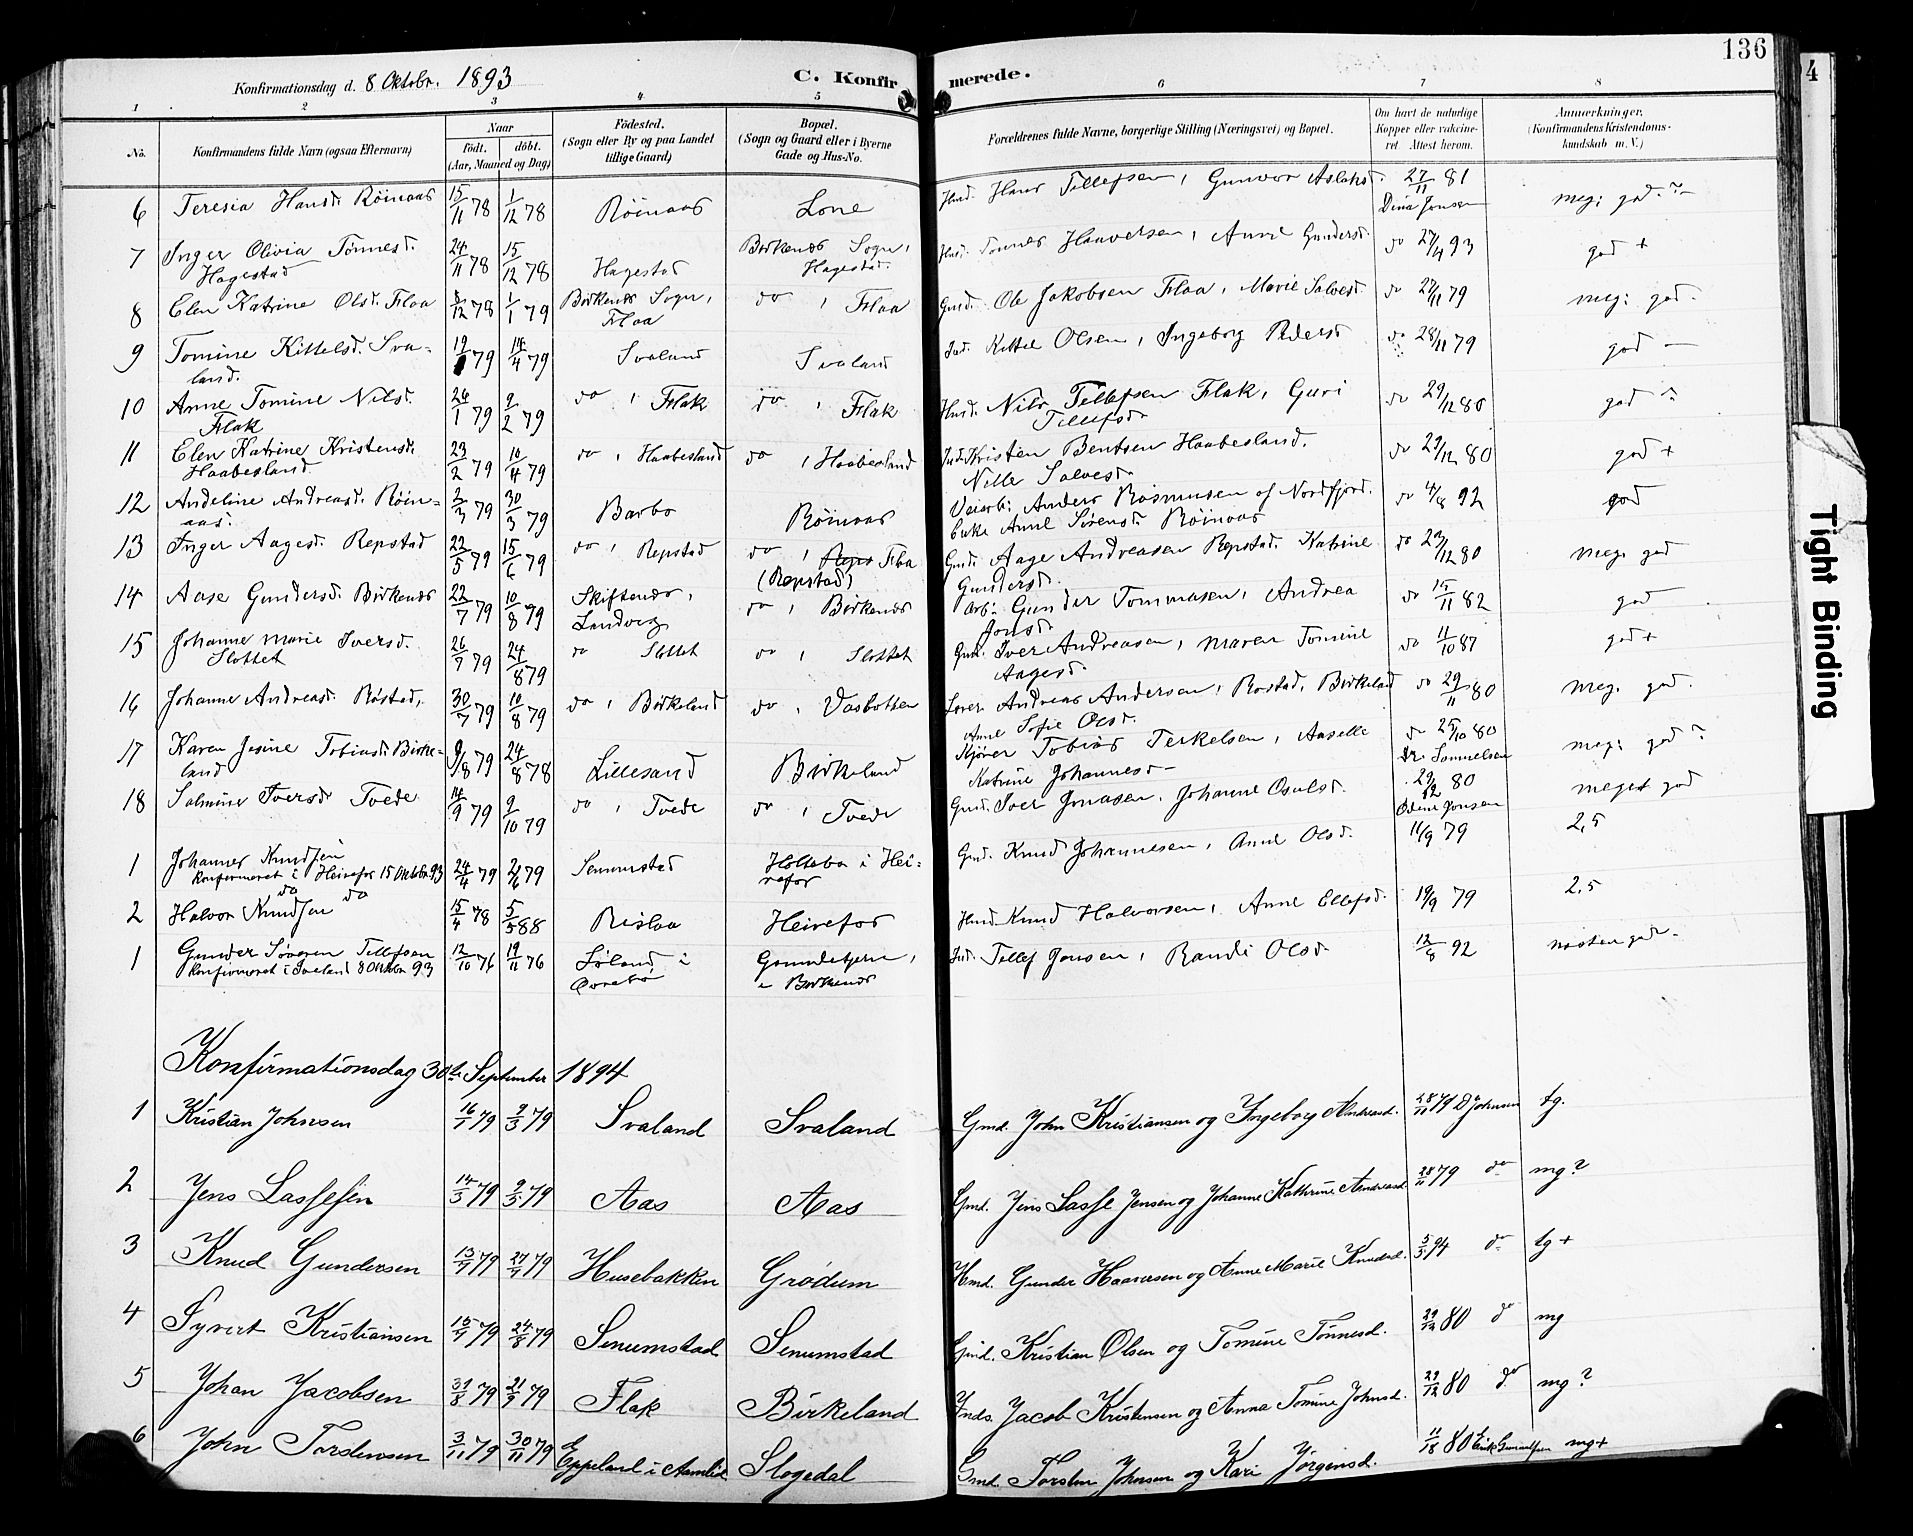 136
4
Tight Binding
Konfirmationsdag d. 8 Oktobr. 1893
C. Konfirmerede.
1 2 3 4 5 6 7 8
No.
Konfirmandens fulde Navn (ogsaa Efternavn)
Naar
født. døbt.
(Aar, Maaned og Dag)
Fødested.
(Sogn eller By og paa Landet
tillige Gaard)
Bopæl.
(Sogn og Gaard eller i Byerne
Gade og Hus-No.
Forældrenes fulde Navne, borgerlige Stilling (Næringsvei) og Bopæl.
Om havt de naturlige
Kopper eller vakcine-
ret. Attest herom.
Anmærkninger.
(Konfirmandens Kristendoms-
kundskab m. V.)
6 Teresia Hansd. Röinaas 15/11 78 1/12 78 Röinaas Lone Hmd. Hans Tellefsen, Gunvor Aslaksd. 27/11 81
Dina Jonsen meg. god ÷
7 Inger Olivia Tønnesd. 24/11 78 15/12 78 Hagestad Birkenæs Sogn, Hmd. Tønnes Haaversen, Anne Gundersd. do 27/4 93 god +
Hagestad Hagestad.
8 Elen Katrine Olsd. Flaa 8/12 78 1/1 79 Birkenæs Sogn, do , Flaa Gmd. Ole Jakobsen Flaa, Marie Salvesd. do 27/11 79 meg. god.
Flaa
9 Tomine Kittelsd. Sva- 79 14/4 79 Svaland Svaland Ind. Kittel Olsen, Ingeborg Pedersd. do 28/11 79 god —
land.
10 Anne Tomine Nilsd. 26/1 79 9/2 79 do , Flak do , Flak Hmd. Nils Tellefsen Flak, Guri do 29/12 80 god ÷
Flak Tellefsd.
11 Elen Katrine Kristensd. 23/2 79 10/4 79 do , Haabesland do , Haabesland Ind. Kristen Bentsen Haabesland. do 29/12 80 god +
Haabesland Nille Salvesd.
12 Andeline Andreasd. Röin- 2/3 79 30/3 79 Barbo Röinaas Veiarb. Anders Rasmusen af Nordfjord. do 4/8 92 god
aas. Anne Sørensd. Röinaas
13 Inger Aagesd. Repstad 22/5 79 15/6 79 do , Repstad do , Reps Flaa Gmd. Aage Andreasen Repstad. Katrine do 29/12 80 meg. god
(Repstad) Gundersd.
14 Aase Gundersd. Birkenæs 22/7 79 10/8 79 Skiftenæs, do , Birkenæs Arb. Gunder Tommasen, Andrea do 15/11 82 god
Landvig Jonsd.
15 Johanne Marie Iversd. 26/7 79 24/8 79 do Slottet do , Slottet Gmd. Iver Andreasen, Maren Tomine do 11/10 87 god +
Slottet Aagesd.
16 Johanne Andreasd. Röstad, 30/7 79 10/8 79 do , Birkeland do , Vasbotten Andreas Andersen, Rostad, Birkeland do 29/11 80 meg. god.
Anne Sofie Olsd.
17 Karen Josine Tobiasd. Birke- 9/8 79 24/8 78 Lillesand Birkeland Tobias Terkelsen, Aaselle do 25/10 80 meg. god ÷
land Katrine Johannesd. Dr. Sammelsen
18 Salmine Iversd. Tvede 14/9 79 9/10 79 do , Tvede do , Tvede Gmd. Iver Jonasen. Johanne Osulsd. 29/12 80 meget god
Jonsen
1 Johannes Knudsen 24/4 79 2/6 79 Senumstad i Hei- Gmd. Knud Johannesen, Anne Olsd. 11/9 79 2,5
konfirmeret i Heirefos 15 Oktobr. 93 refos
do do
2 Halvor Knudsen 15/4 78 5/5 88 Rislaa Heirefos Hmd. Knud Halvorsen, Anne Ellefsd. 19/9 79 2,5
1 Gunder Søversen Tellefsen 12/10 76 19/11 76 Søland i Grundetjern, Ind. Tellef Jonsen, Randi Olsd. 12/8 92 næsten god.
konfirmeret i Svaland 8 Oktobr 93 Øvrebø i Birkenæs
Konfirmationsdag 30te September 1894
1 Kristian Johnsen 16/1 79 9/3 79 Svaland Svaland Gmd. John Kristiansen og Ingeborg Andreasd. 28/11 79 D. Johnsen tg.
2 Jens Lassesen 14/3 79 9/5 79 Aas Aas Gmd. Jens Lasse Jensen og Johanne Kathrine Andreasd. 28/11 79 do mg ?
3 Knud Gundersen 13/7 79 27/7 79 Husebakken Grødum Hmd. Gunder Haaversen og Anne Marie Knudsd. 5/5 94 do tg +
4 Syvert Kristiansen 15/7 79 24/8 79 Senumstad Senumstad Gmd. Kristian Olsen og Tomine Tönnesd. 29/12 80 do mg
5 Johan Jacobsen 31/8 79 21/9 79 Flak Birkeland Inds. Jacob Kristensen og Anna Tomine Johnsd. 29/12 80 do mg ?
6 John Torstensen 3/11 79 30/11 79 Eppeland i Aamlid Slogedal Gmd. Torsten Johnsen og Kari Jørgensd. 80 mg +